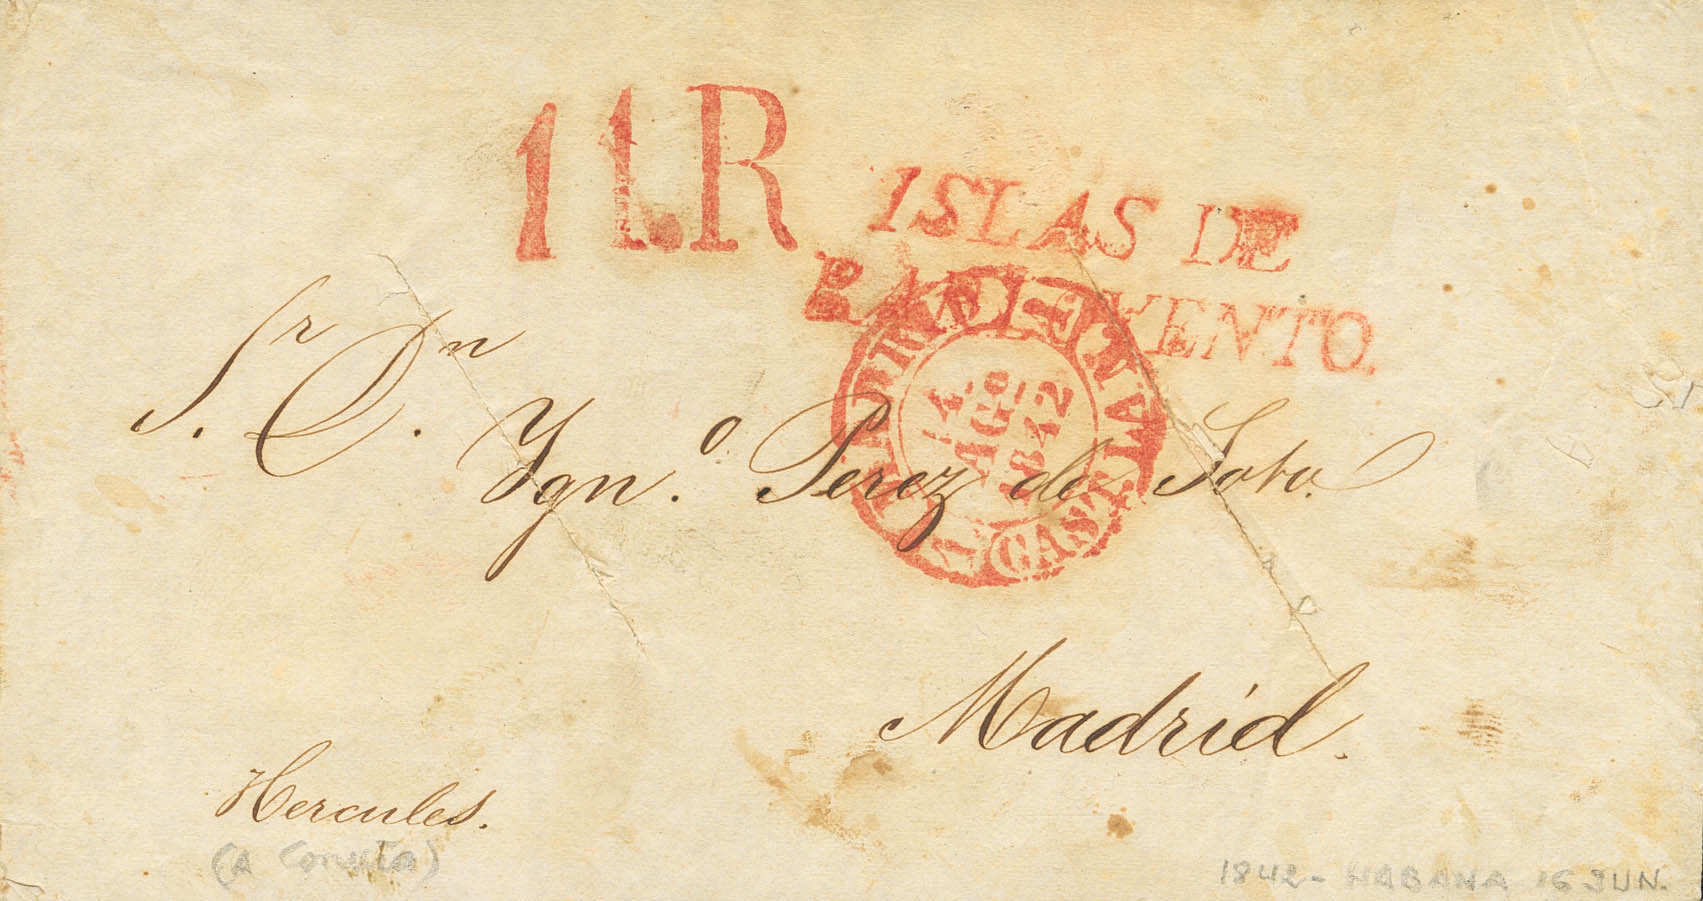 11.R
ISLAS DE
BARLOVENTO.
14
AGO
1842
CASTILLA
Sr. Dn.
Ygn.º Perez de Soto.
Madrid.
Hercules.
(A Coruña)
1842 - HABANA 16 JUN.